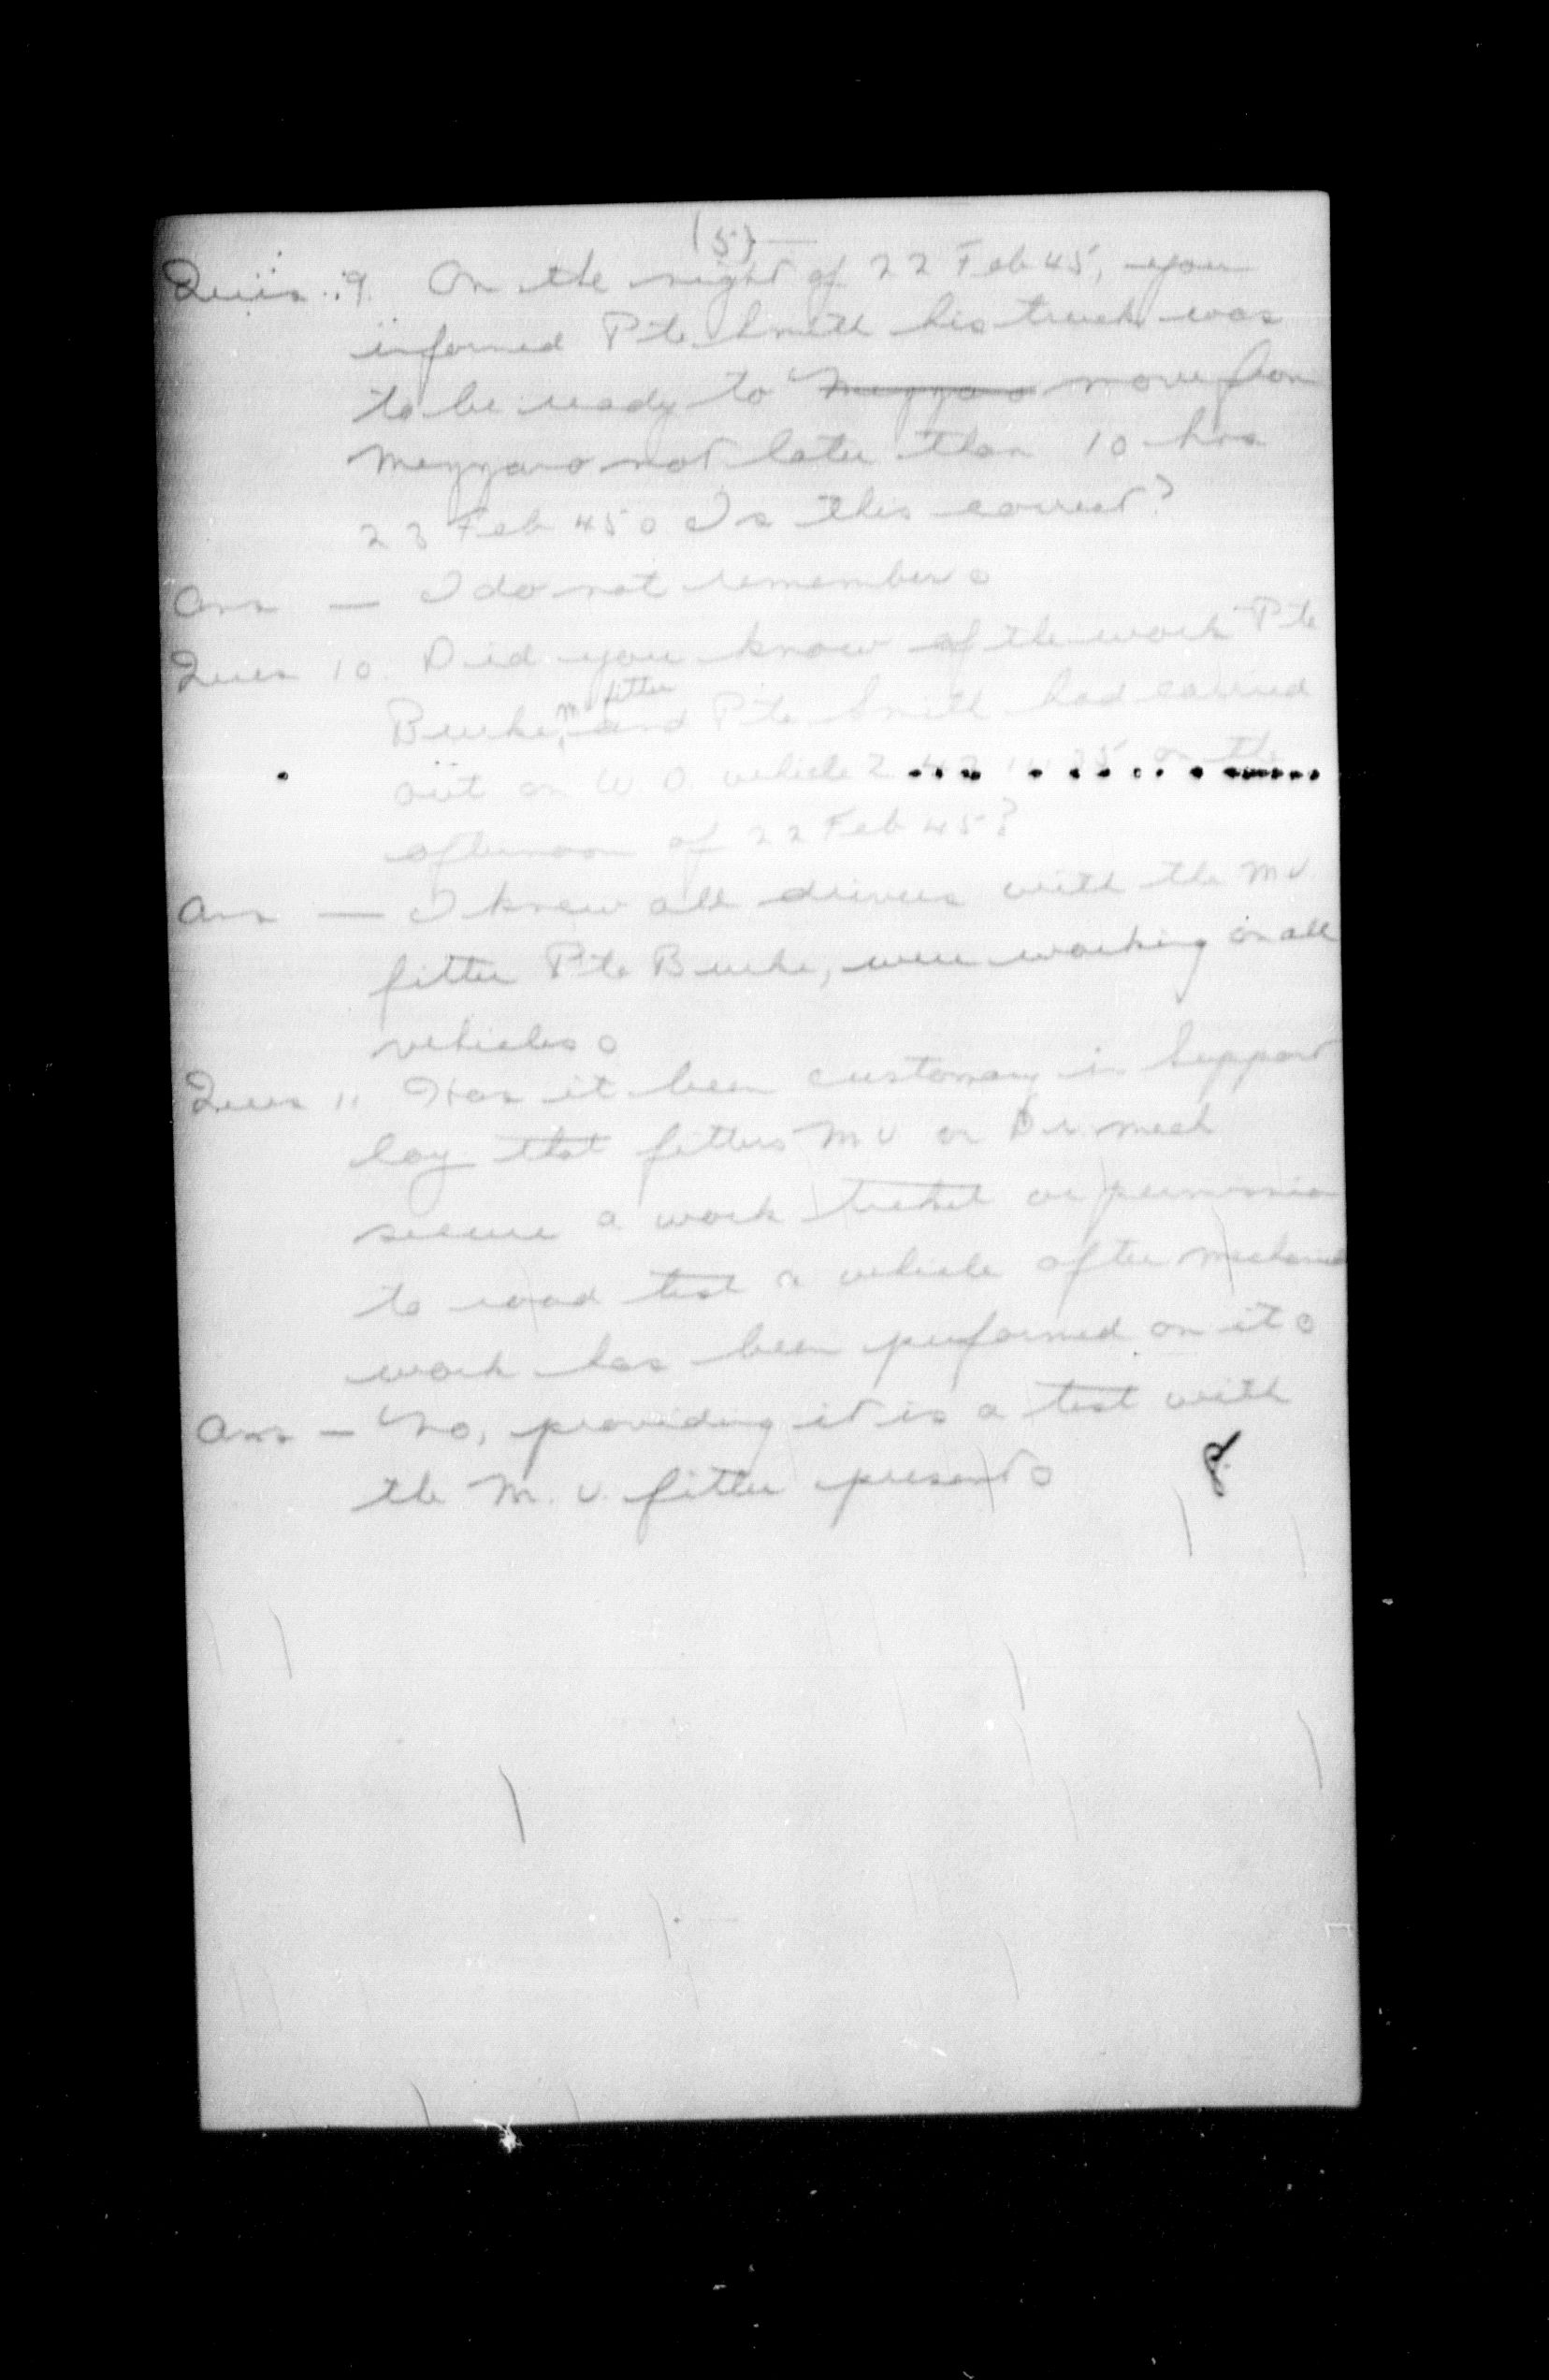 (5)
Ques. 9. On the night of 22 Feb 45, you
informed Pte Smith his truck was
to be ready to Mezzano move from
Mezzano not later than 10 hrs
23 Feb 45. Is this correct?
Ans — I do not remember.
Ques 10. Did you know of the work Pte
Burke, MV fitter and Pte Smith had carried
out on W.D. vehicle on the
afternoon of 22 Feb 45?
Ans — I knew all drivers with the MV
fitter Pte Burke, were working on all
vehicles.
Ques 11 Has it been customary in Support
Coy that fitters MV or Dr. mech
secure a work ticket or permission
to road test a vehicle after mechanical
work has been performed on it.
Ans — No, providing it is a test with
the M.V. fitter present.